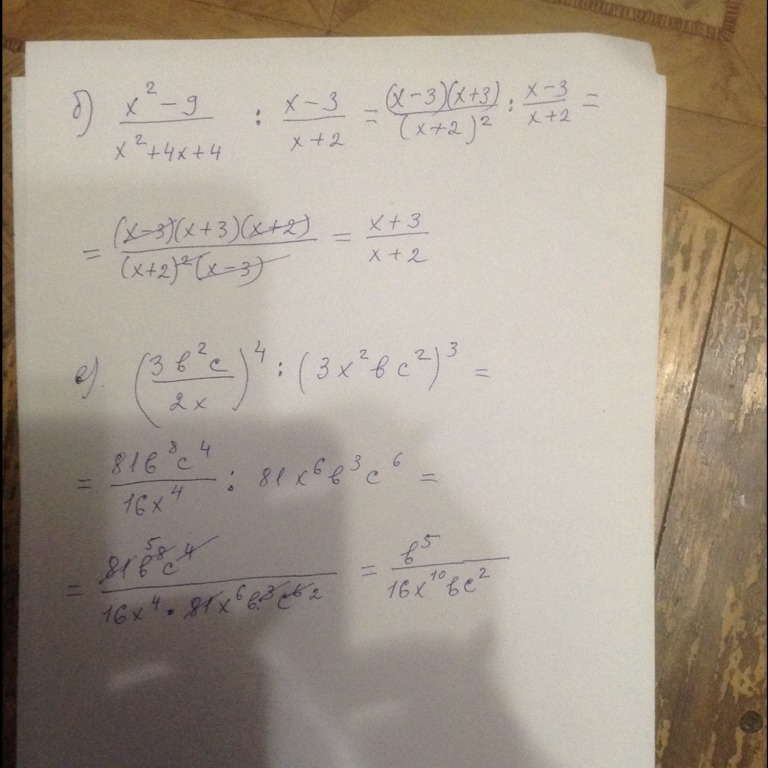 б) (x² - 9)/(x² + 4x + 4) : (x - 3)/(x + 2) = (x - 3)(x + 3)/(x + 2)² : (x - 3)/(x + 2) =
= (x - 3)(x + 3)(x + 2)/(x + 2)²(x - 3) = (x + 3)/(x + 2)
е). (3в²c/2x)⁴ : (3x²вc²)³ =
= 81в⁸c⁴/16x⁴ : 81x⁶в³c⁶ =
= 81в⁵⁸c⁴/16x⁴ · 81x⁶в³c⁶² = в⁵/16x¹⁰вc²